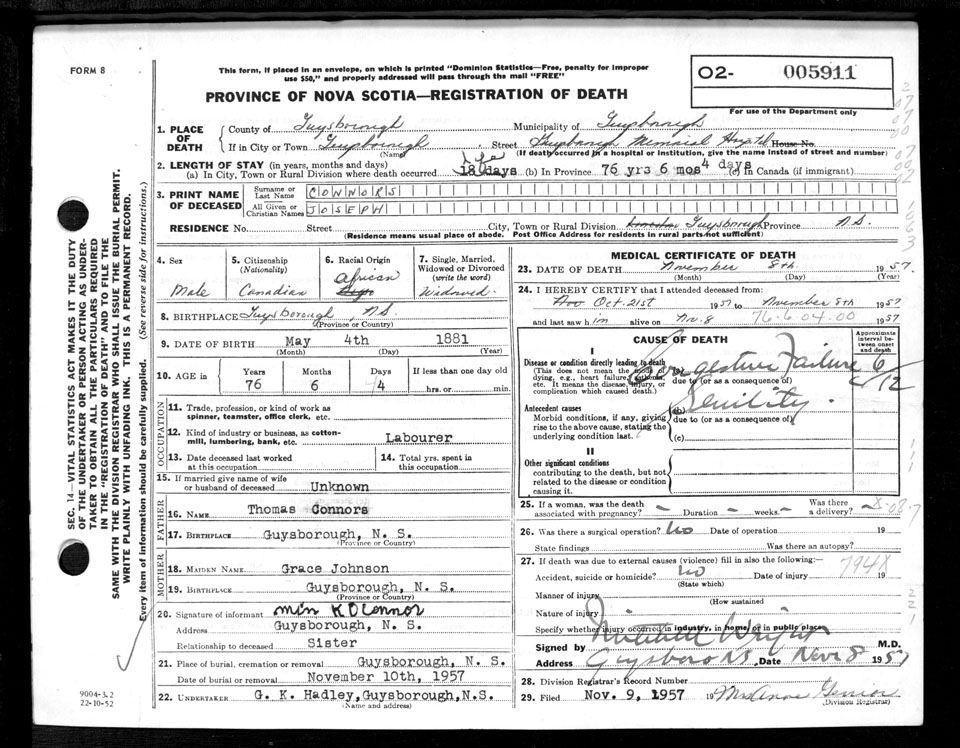 FORM 8
This form, if placed in an envelope, on which is printed "Dominion Statistics—Free, penalty for improper
use $50," and properly addressed will pass through the mail "FREE"
PROVINCE OF NOVA SCOTIA—REGISTRATION OF DEATH
O2- 005911
For use of the Department only
1. PLACE OF DEATH
County of Guysborough Municipality of Guysborough
If in City or Town Guysborough Street Guysborough Memorial Hospital House No.
(Name) (If death occurred in a hospital or institution, give the name instead of street and number)
2. LENGTH OF STAY (in years, months and days)
(a) In City, Town or Rural Division where death occurred 18 days (b) In Province 76 yrs 6 mos 4 days (c) In Canada (if immigrant)
3. PRINT NAME OF DECEASED
Surname or Last Name CONNORS
All Given or Christian Names JOSEPH
RESIDENCE No. Street City, Town or Rural Division Guysborough Province N.S.
(Residence means usual place of abode. Post Office Address for residents in rural parts not sufficient)
4. Sex
Male
5. Citizenship
(Nationality)
Canadian
6. Racial Origin
African
7. Single, Married, Widowed or Divorced
(write the word)
Widowed
8. BIRTHPLACE Guysborough, N.S.
(Province or Country)
9. DATE OF BIRTH May 4th 1881
(Month) (Day) (Year)
10. AGE in Years Months Days If less than one day old
76 6 4 hrs. or min.
OCCUPATION
11. Trade, profession, or kind of work as
spinner, teamster, office clerk, etc.
12. Kind of industry or business, as cotton-
mill, lumbering, bank, etc. Labourer
13. Date deceased last worked
at this occupation
14. Total yrs. spent in
this occupation
15. If married give name of wife
or husband of deceased Unknown
FATHER
16. NAME Thomas Connors
17. BIRTHPLACE Guysborough, N. S.
(Province or Country)
MOTHER
18. MAIDEN NAME Grace Johnson
19. BIRTHPLACE Guysborough, N. S.
(Province or Country)
20. Signature of informant
Address Guysborough, N. S.
Relationship to deceased Sister
21. Place of burial, cremation or removal Guysborough, N. S.
Date of burial or removal November 10th, 1957
22. UNDERTAKER G. K. Hadley,Guysborough,N.S.
(Name and address)
MEDICAL CERTIFICATE OF DEATH
23. DATE OF DEATH November 8th 1957
(Month) (Day) (Year)
24. I HEREBY CERTIFY that I attended deceased from:
Nov Oct. 21st 1957 to November 8th 1957
and last saw him alive on Nov. 8 1957
76-6 04.00
CAUSE OF DEATH
Approximate interval between onset and death
I
Disease or condition directly leading to death
(This does not mean the mode of
dying, e.g., heart failure, asthenia,
etc. It means the disease, injury, or
complication which caused death.)
(a) Congestive Failure 6/12
due to (or as a consequence of)
Antecedent causes
Morbid conditions, if any, giving
rise to the above cause, stating the
underlying condition last.
(b) Senility.
due to (or as a consequence of)
(c)
II
Other significant conditions
contributing to the death, but not
related to the disease or condition
causing it.
25. If a woman, was the death
associated with pregnancy? – Duration – weeks. – Was there a delivery? –
26. Was there a surgical operation? No Date of operation 19
State findings Was there an autopsy?
27. If death was due to external causes (violence) fill in also the following:—
794X
Accident, suicide or homicide? No Date of injury 19
(State which)
Manner of injury
(How sustained
Nature of injury
Specify whether injury occurred in industry, in home, or in public place
Signed by Wright M.D.
Address Guysboro NS, Date Nov 8 1957
28. Division Registrar's Record Number
29. Filed Nov. 9, 1957 19
(Division Registrar)
SEC. 14—VITAL STATISTICS ACT MAKES IT THE DUTY
OF THE UNDERTAKER OR PERSON ACTING AS UNDER-
TAKER TO OBTAIN ALL THE PARTICULARS REQUIRED
IN THE "REGISTRATION OF DEATH" AND TO FILE THE
SAME WITH THE DIVISION REGISTRAR WHO SHALL ISSUE THE BURIAL PERMIT.
WRITE PLAINLY WITH UNFADING INK. THIS IS A PERMANENT RECORD.
Every item of information should be carefully supplied. (See reverse side for instructions.)
9004-3.2
22-10-52